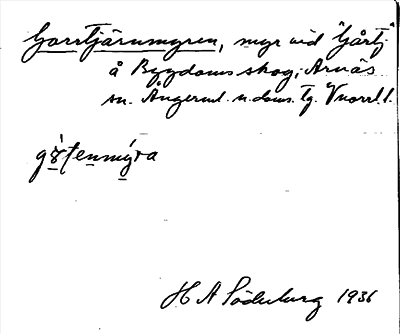 Gorrtjärnmyren, myr vid "Gårtj"
å Bygdoms skog, Arnäs
sn. Ångerml. n. doms. Tg. Vnorrl. l.
H A Söderberg 1936